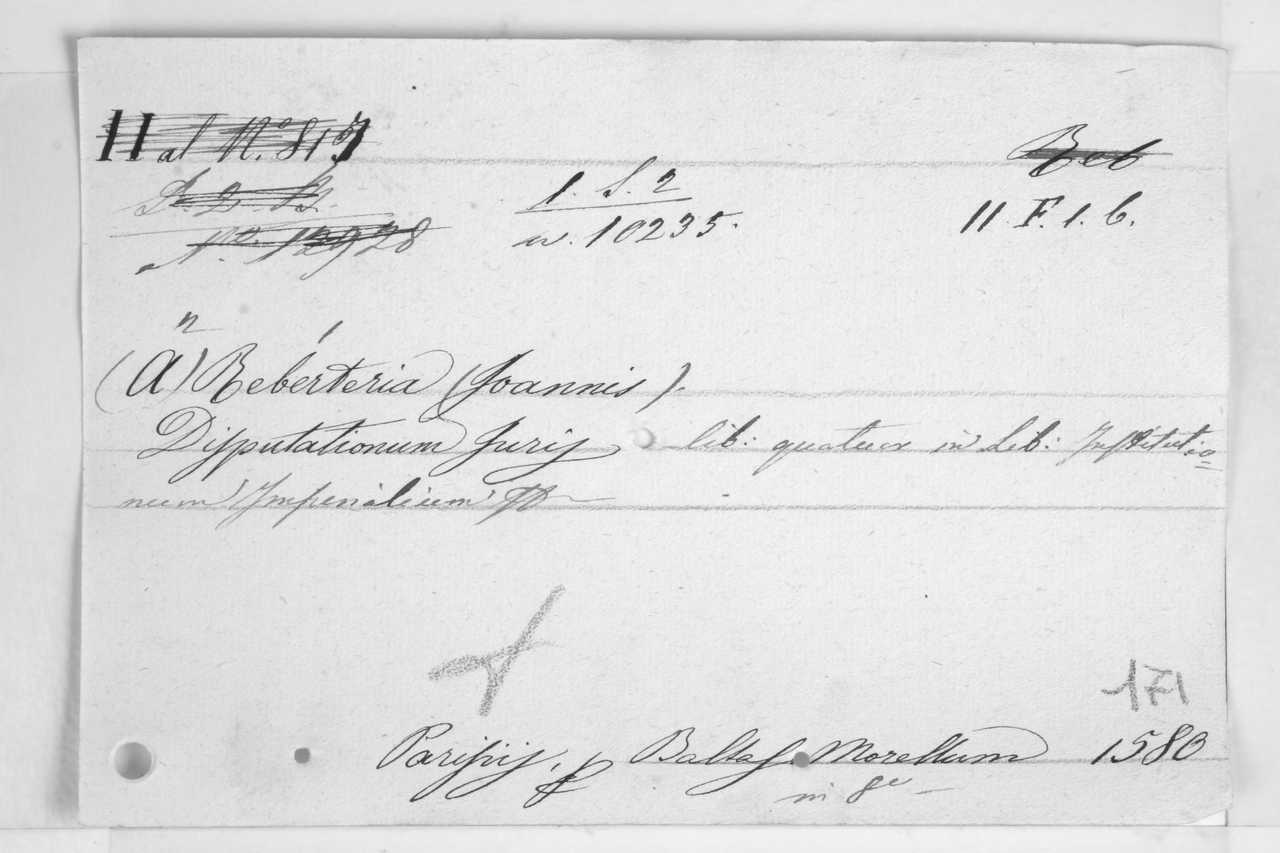 II al N.º 817
Reb
P. 2. S2.
1. S. 2
N.º 12928
w. 10235.
11. F. 1. b.
n
(A) Reberteria (Joannis).
Disputationum Juris lib: quatuor in Lib: Institutio=
num Imperialium
171
Parisijs, Baltas. Morellum 1580
in 8º